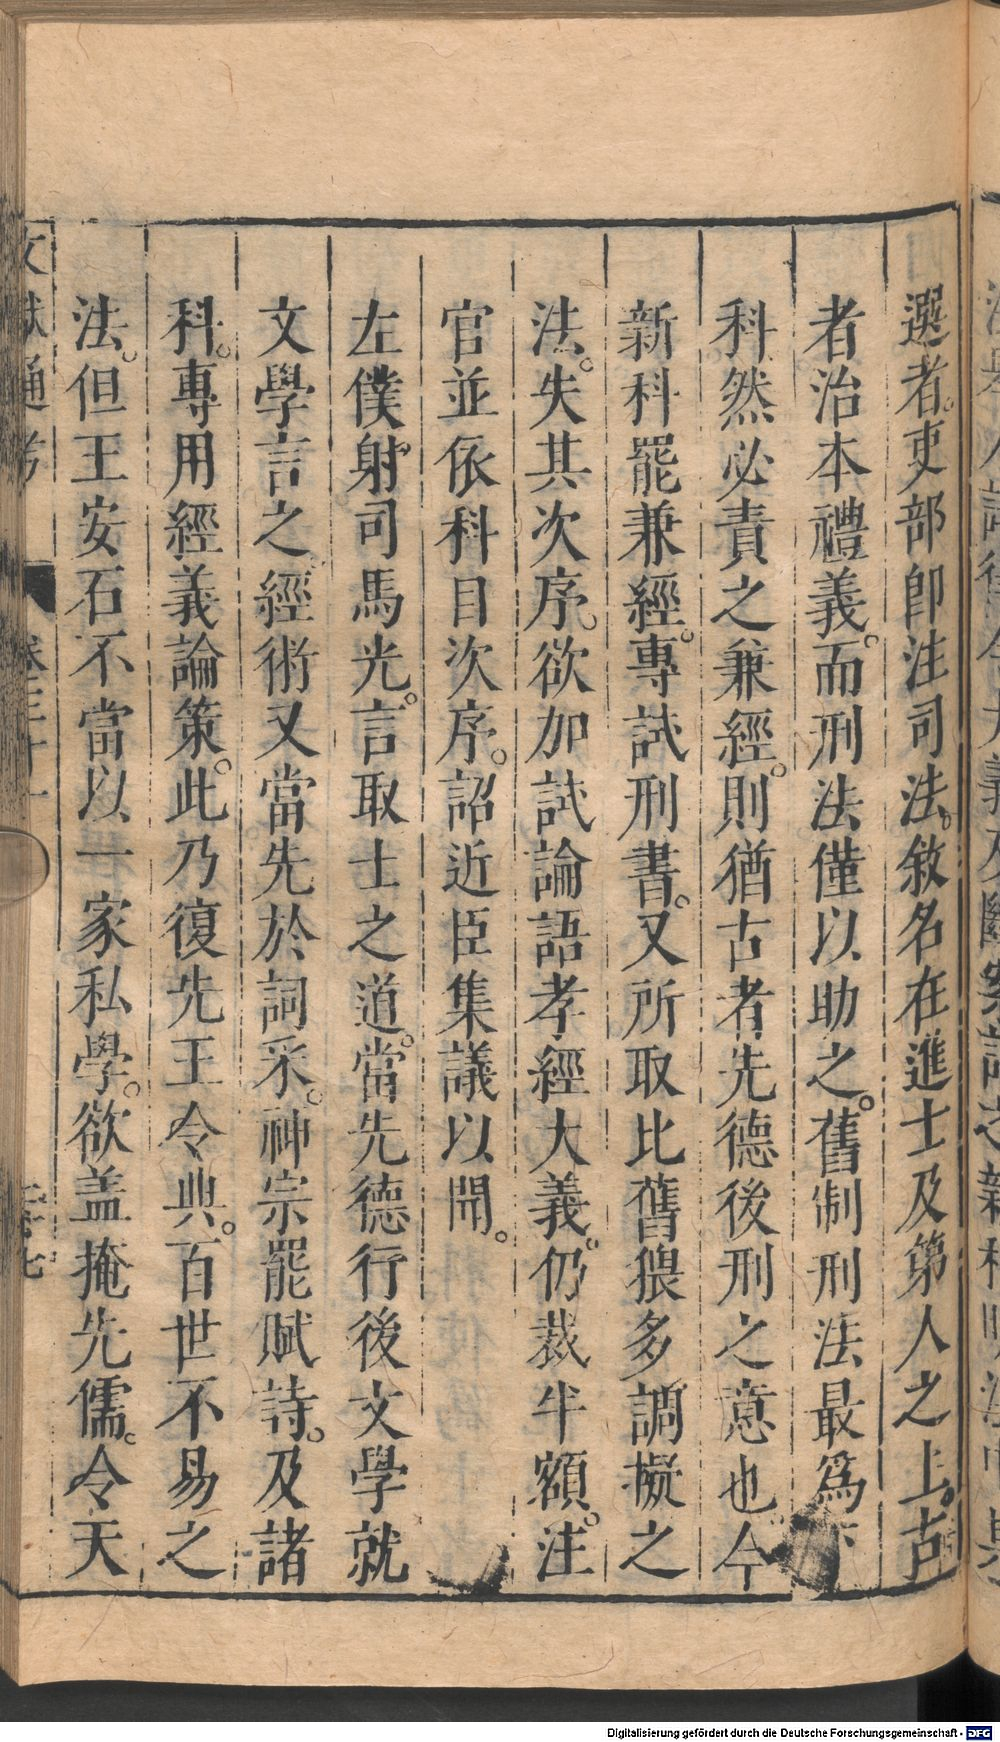 選者。吏部卽注司法。敘名在進士及第人之上。古
者治本禮義。而刑法僅以助之。舊制刑法最爲
科。然必責之兼經。則猶古者先德後刑之意也。今
新科罷兼經。專試刑書。又所取比舊猥多。調擬之
法。失其次序。欲加試論語孝經大義。仍裁半額。注
官並依科目次序。詔近臣集議以聞。
左僕射司馬光。言取士之道。當先德行後文學就
文學言之。經術又當先於詞采。神宗罷賦詩。及諸
科。專用經義論策。此乃復先王令典。百世不易之
法。但王安石不當以一家私學。欲盖掩先儒。令天
文獻通考
卷三十一
Digitalisierung gefördert durch die Deutsche Forschungsgemeinschaft - DFG